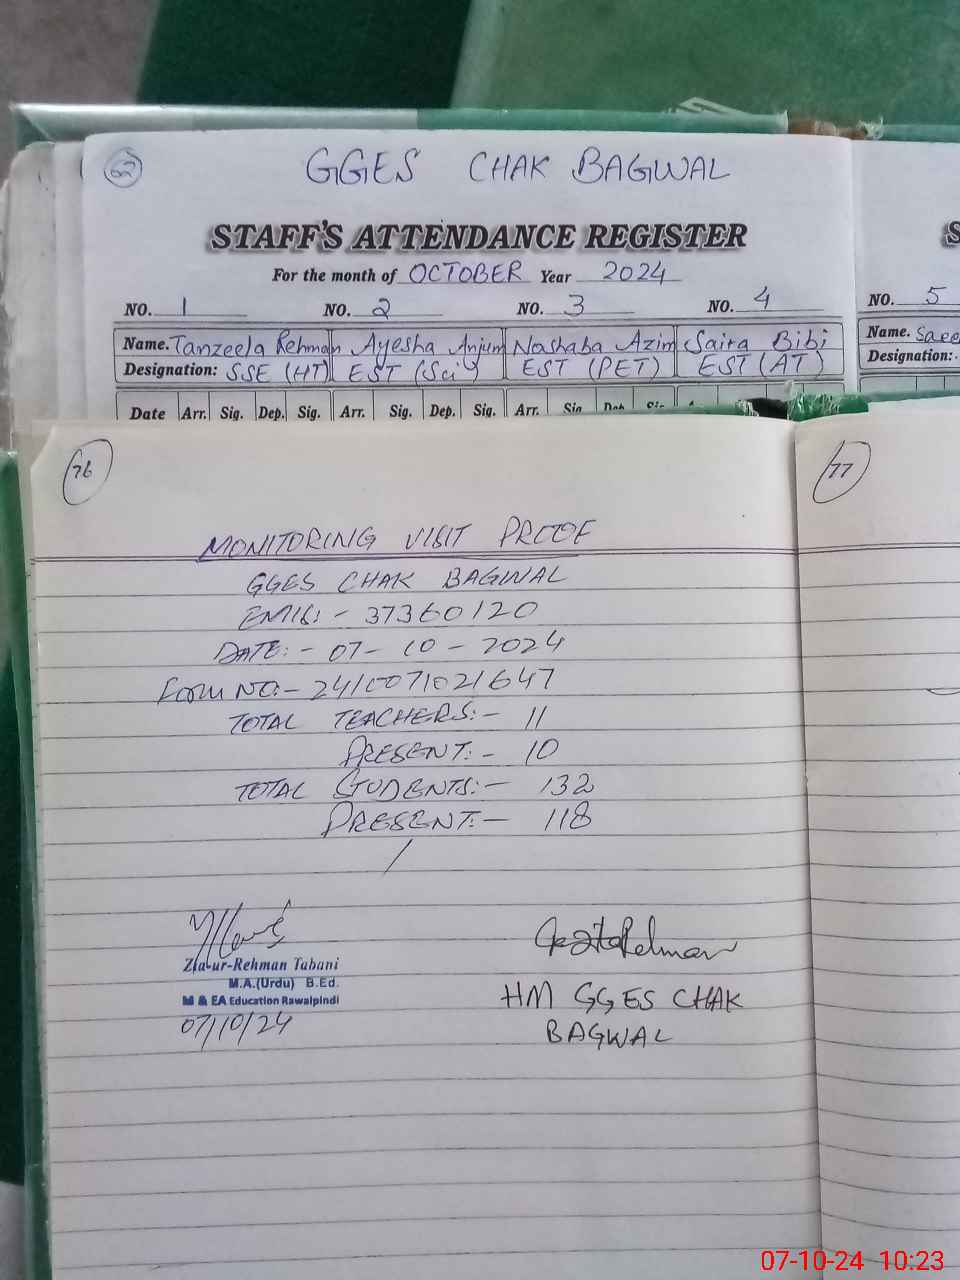 62
GGES CHAK BAGWAL
STAFF'S ATTENDANCE REGISTER
S
For the month of OCTOBER Year 2024
NO. 1 NO. 2 NO. 3 NO. 4 NO. 5
Name. Tanzeela Rehman Ayesha Anjum Noshaba Azim Saira Bibi Name. Saee
Designation: SSE (HT) EST (Sci) EST (PET) EST (AT) Designation:
Date Arr. Sig. Dep. Sig. Arr. Sig. Dep. Sig. Arr. Sig. Dep. Sig.
76 77
MONITORING VISIT PROOF
GGES CHAK BAGWAL
EMIS:- 37360120
DATE:- 07-10-2024
Form NO:- 2410071021647
TOTAL TEACHERS:- 11
PRESENT:- 10
TOTAL STUDENTS:- 132
PRESENT:- 118
Zia-ur-Rehman Tabani
M.A.(Urdu) B.Ed.
M & EA Education Rawalpindi
07/10/24
HM GGES CHAK
BAGWAL
07-10-24 10:23